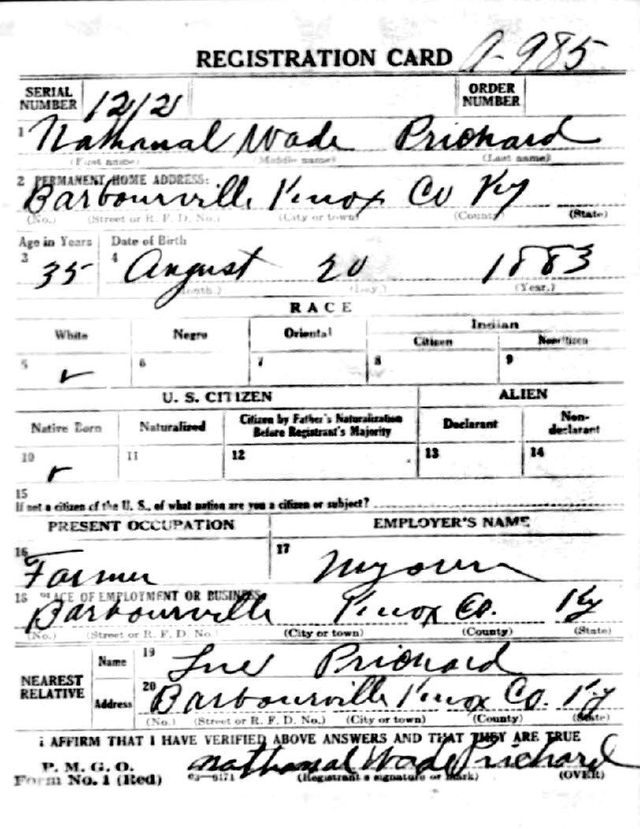 REGISTRATION CARD A-985
SERIAL NUMBER 1212 ORDER NUMBER
1 Nathanal Wade Prichard
(First name) (Middle name) (Last name)
2 PERMANENT HOME ADDRESS:
Barbourville Knox Co Ky
(No.) (Street or R. F. D. No.) (City or town) (County) (State)
Age in Years Date of Birth
3 35 4 August 20 1883
(Month.) (Day.) (Year.)
RACE
White Negro Oriental Indian
Citizen Noncitizen
5 ✓ 6 7 8 9
U. S. CITIZEN ALIEN
Native Born Naturalized Citizen by Father's Naturalization Before Registrant's Majority Declarant Non-declarant
10 ✓ 11 12 13 14
15
If not a citizen of the U. S., of what nation are you a citizen or subject?
PRESENT OCCUPATION EMPLOYER'S NAME
16 Farmer 17 My own
18 PLACE OF EMPLOYMENT OR BUSINESS:
Barbourville Knox Co. Ky
(No.) (Street or R. F. D. No.) (City or town) (County) (State)
NEAREST RELATIVE Name 19 Prichard
Address 20 Barbourville Knox Co. Ky
(No.) (Street or R. F. D. No.) (City or town) (County) (State)
I AFFIRM THAT I HAVE VERIFIED ABOVE ANSWERS AND THAT THEY ARE TRUE
P. M. G. O.
Form No. 1 (Red) 03-6171 Nathanal Wade Prichard
(Registrant's signature or mark) (OVER)